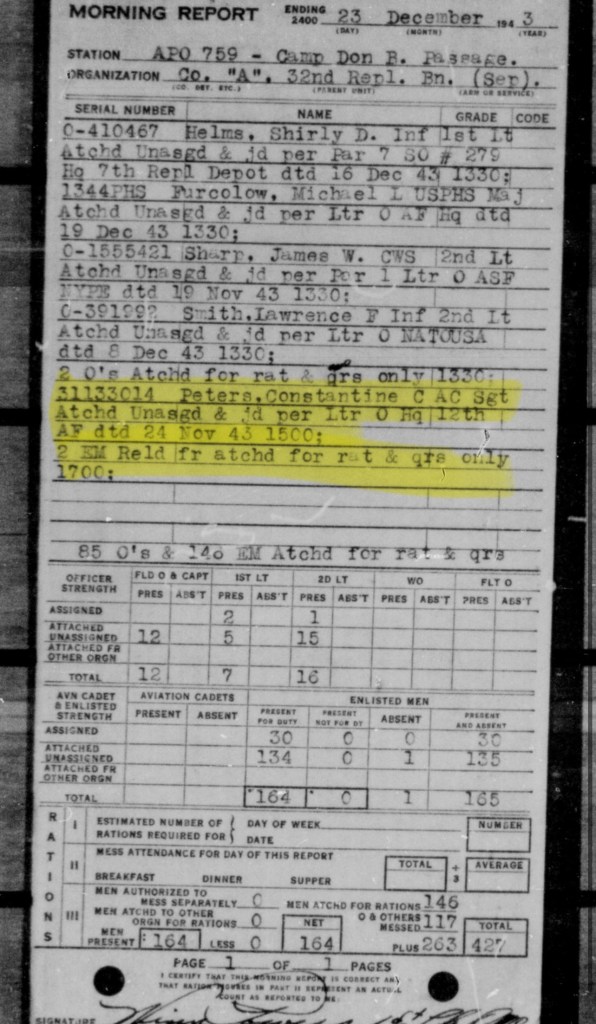 MORNING REPORT ENDING 2400 23 December 1943
(DAY) (MONTH) (YEAR)
STATION APO 759 - Camp Don B. Passage.
ORGANIZATION Co. "A", 32nd Repl. Bn. (Sep).
(CO. DET. ETC.) (PARENT UNIT) (ARM OR SERVICE)
SERIAL NUMBER NAME GRADE CODE
O-410467 Helms, Shirly D. Inf 1st Lt
Atchd Unasgd & jd per Par 7 SO # 279
Hq 7th Repl Depot dtd 16 Dec 43 1330;
1344PHS Furcolow, Michael L USPHS Maj
Atchd Unasgd & jd per Ltr O AF Hq dtd
19 Dec 43 1330;
O-1555421 Sharp, James W. CWS 2nd Lt
Atchd Unasgd & jd per Par 1 Ltr O ASF
NYPE dtd 19 Nov 43 1330;
O-391992 Smith,Lawrence F Inf 2nd Lt
Atchd Unasgd & jd per Ltr O NATOUSA
dtd 8 Dec 43 1330;
2 O's Atchd for rat & qrs only 1330;
31133014 Peters,Constantine C AC Sgt
Atchd Unasgd & jd per Ltr O Hq 12th
AF dtd 24 Nov 43 1500;
2 EM Reld fr atchd for rat & qrs only
1700;
85 O's & 146 EM Atchd for rat & qrs
OFFICER STRENGTH FLD O & CAPT 1ST LT 2D LT WO FLT O
PRES ABS'T PRES ABS'T PRES ABS'T PRES ABS'T PRES ABS'T
ASSIGNED 2 1
ATTACHED UNASSIGNED 12 5 15
ATTACHED FR OTHER ORGN
TOTAL 12 7 16
AVN CADET & ENLISTED STRENGTH AVIATION CADETS ENLISTED MEN
PRESENT ABSENT PRESENT FOR DUTY PRESENT NOT FOR DY ABSENT PRESENT AND ABSENT
ASSIGNED 30 0 0 30
ATTACHED UNASSIGNED 134 0 1 135
ATTACHED FR OTHER ORGN
TOTAL 164 0 1 165
RATIONS
I ESTIMATED NUMBER OF RATIONS REQUIRED FOR { DAY OF WEEK DATE NUMBER
II MESS ATTENDANCE FOR DAY OF THIS REPORT TOTAL ÷ 3 AVERAGE
BREAKFAST DINNER SUPPER
III MEN AUTHORIZED TO MESS SEPARATELY 0 MEN ATCHD FOR RATIONS 146
MEN ATCHD TO OTHER ORGN FOR RATIONS 0 NET O & OTHERS MESSED 117 TOTAL
MEN PRESENT 164 LESS 0 164 PLUS 263 427
PAGE 1 OF 1 PAGES
I CERTIFY THAT THIS MORNING REPORT IS CORRECT AND
THAT RATION FIGURES IN PART II REPRESENT AN ACTUAL
COUNT AS REPORTED TO ME.
SIGNATURE